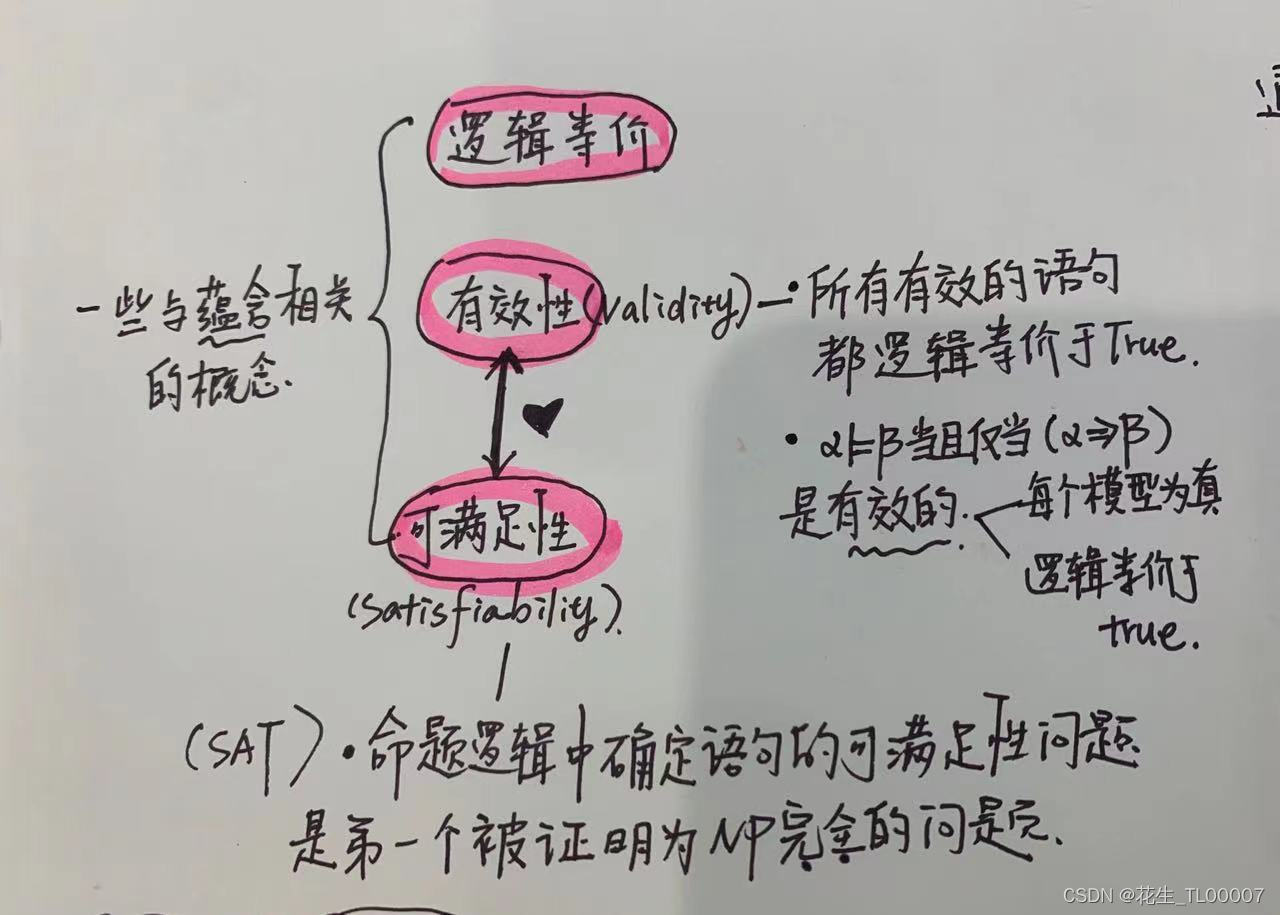 逻辑等价
一些与蕴含相关
的概念.
有效性(Validity)
·所有有效的语句
都逻辑等价于True.
·α⊨β当且仅当(α⇒β)
是有效的.
每个模型为真
逻辑等价于
true.
可满足性
(Satisfiability).
(SAT)·命题逻辑中确定语句的可满足性问题
是第一个被证明为NP完全的问题.
CSDN @花生_TL00007